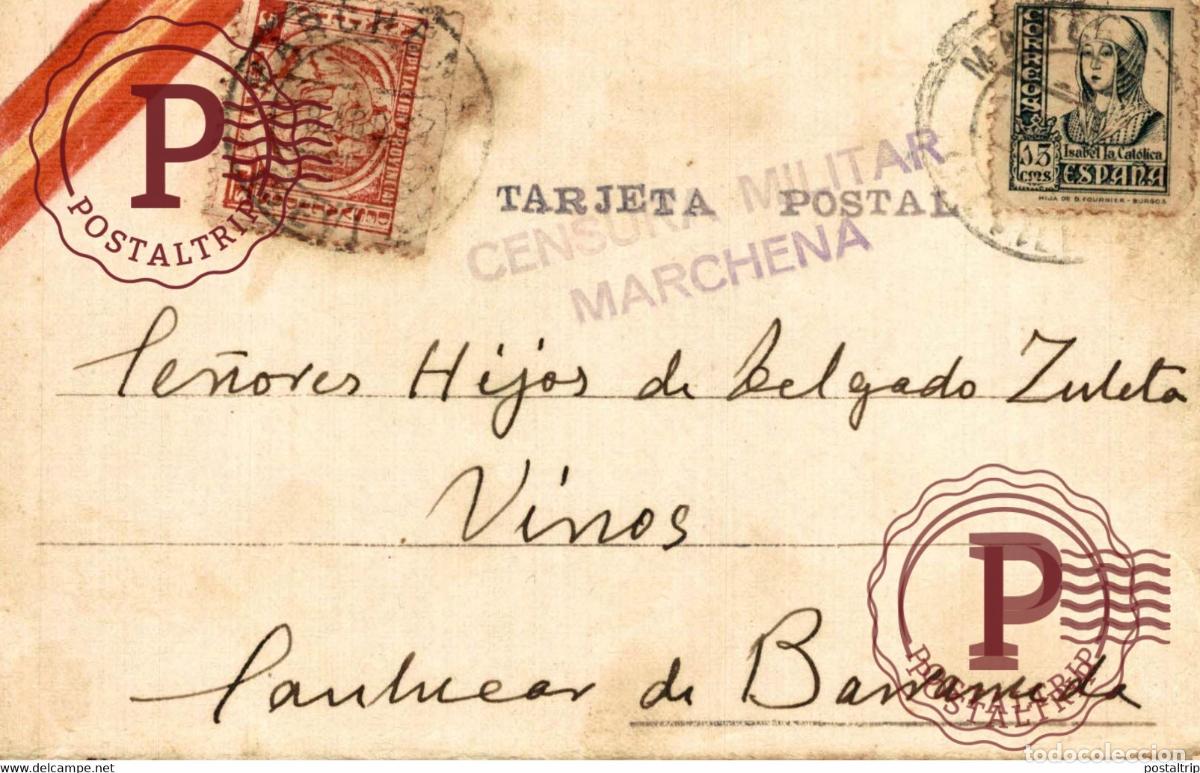 DIPUTACION PROVINCIAL
CORREOS
15
CMS
Isabel la Católica
ESPAÑA
HIJA DE D. FOURNIER - BURGOS
TARJETA POSTAL
CENSURA MILITAR
MARCHENA
Señores Hijos de Delgado Zuleta
Vinos
Sanlucar de Barrameda
P
POSTALTRIP
P
POSTALTRIP
todocoleccion
www.delcampe.net
postaltrip